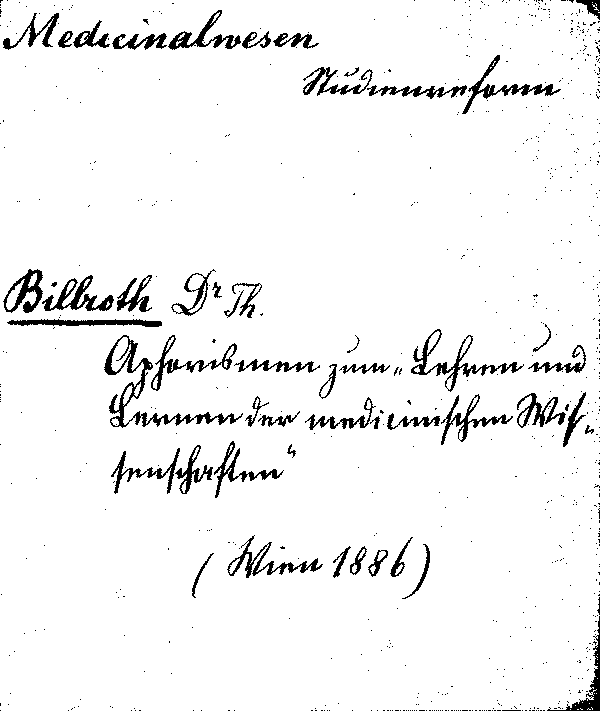 Medicinalwesen
Studienreform
Billroth Dr Th.
Aphorismen zum „Lehren und
Lernen der medicinischen Wis-
senschaften“
(Wien 1886)